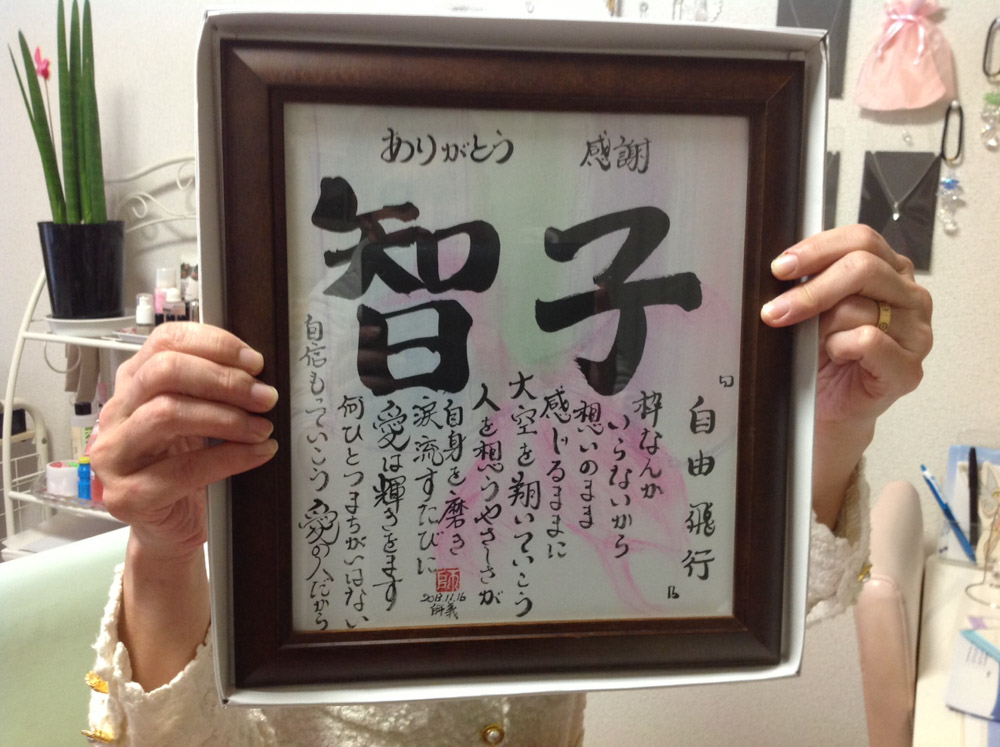 ありがとう 感謝
智子
「自由飛行」
枠なんか
いらないから
想いのまま
感じるままに
大空を翔いていこう
人を想うやさしさが
自身を磨き
涙流すたびに
愛は輝きをます
何ひとつまちがいはない
自信もっていこう 愛の人だから
2013.11.16